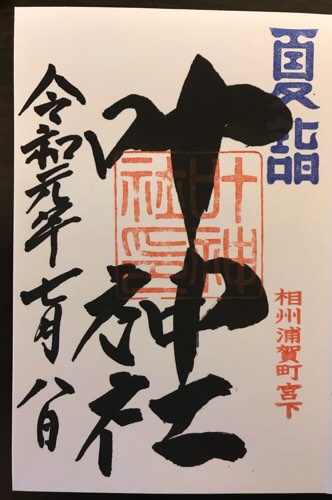 夏詣
相州浦賀町宮下
叶神社
叶神
社印
令和元年七月八日